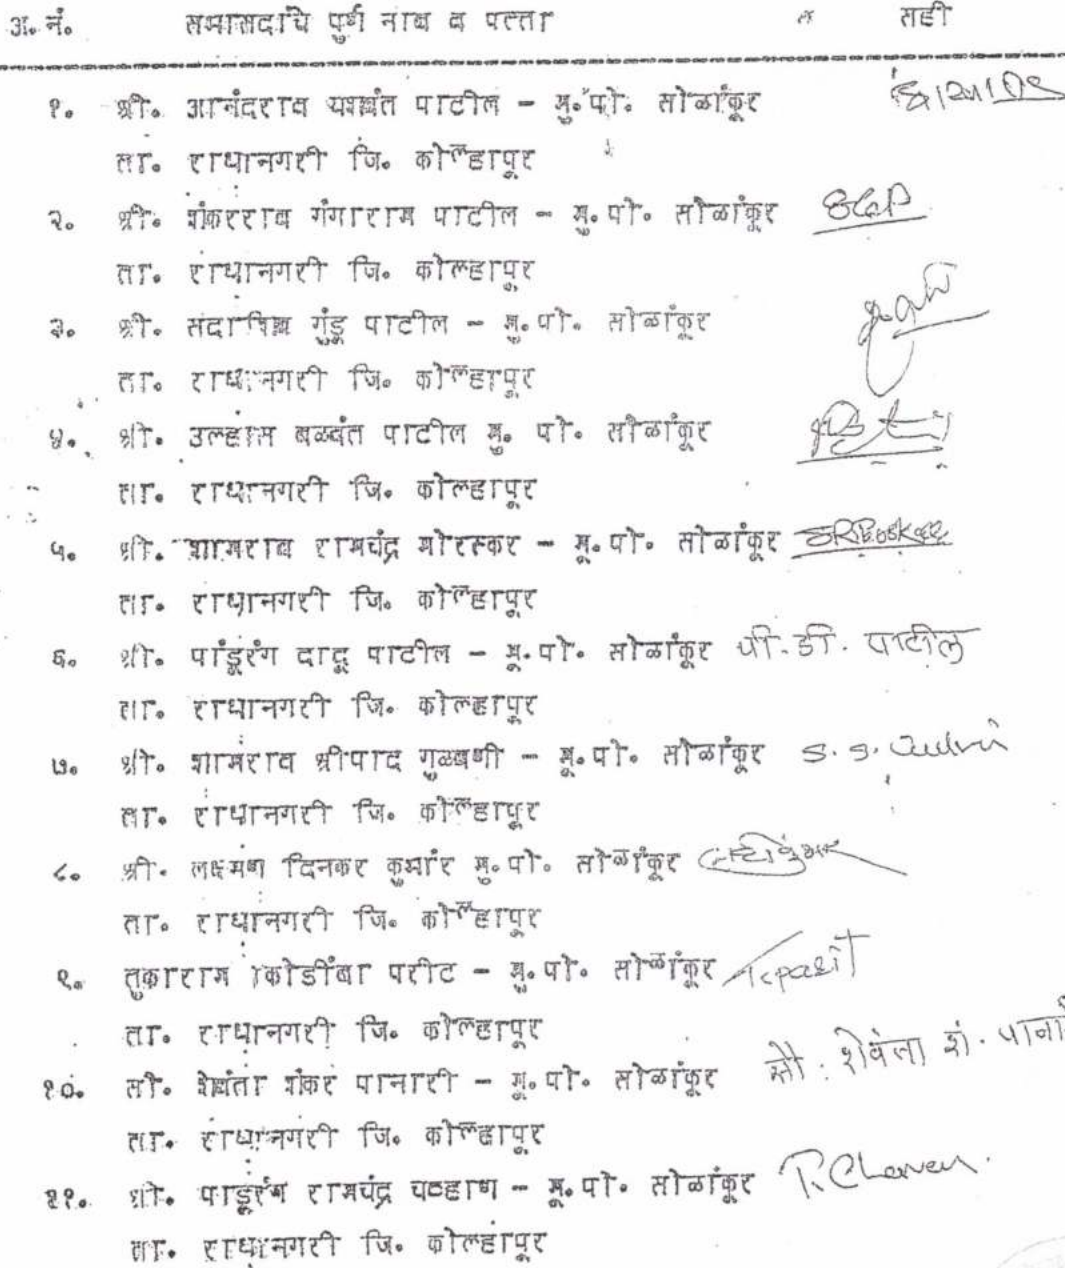 अ. नं. सभासदांचे पुर्ण नाव व पत्ता सही
१. श्री. आनंदराव यशवंत पाटील - मु.पो. सोळांकूर
ता. राधानगरी जि. कोल्हापूर
२. श्री. शंकरराव गंगाराम पाटील - मु.पो. सोळांकूर SGP
ता. राधानगरी जि. कोल्हापूर
३. श्री. सदाशिव गुंडू पाटील - मु.पो. सोळांकूर
ता. राधानगरी जि. कोल्हापूर
४. श्री. उल्हास बळवंत पाटील मु. पो. सोळांकूर
ता. राधानगरी जि. कोल्हापूर
५. श्री. शामराव रामचंद्र मोरस्कर - मू.पो. सोळांकूर
ता. राधानगरी जि. कोल्हापूर
६. श्री. पांडूरंग दादू पाटील - मू.पो. सोळांकूर पी. डी. पाटील
ता. राधानगरी जि. कोल्हापूर
७. श्री. शामंराव श्रीपाद गुळवणी - मू.पो. सोळांकूर S. S.
ता. राधानगरी जि. कोल्हापूर
८. श्री. लक्ष्मण दिनकर कुभांर मु.पो. सोळांकूर
ता. राधानगरी जि. कोल्हापूर
९. तुकाराम कोडींबा परीट - मु.पो. सोळांकूर Tkparit
ता. राधानगरी जि. कोल्हापूर
१०. सौ. शेवंता शंकर पानारी - मू.पो. सोळांकूर सौ. शेवंता शं. पानारी
ता. राधानगरी जि. कोल्हापूर
११. श्री. पाडूरंग रामचंद्र चव्हाण - मू.पो. सोळांकूर P.R.Chavan.
ता. राधानगरी जि. कोल्हापूर